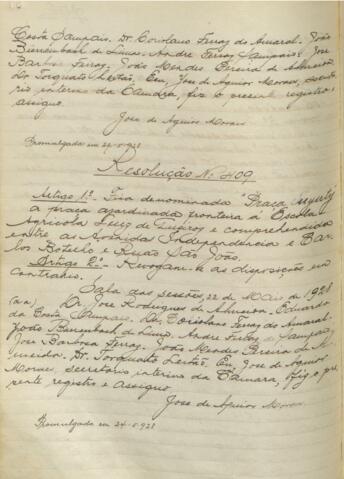 Costa Sampaio. Dr. Coriolano Ferraz do Amaral. João
Bierrenbach de Lima. Andre Ferraz Sampaio. José
Barbosa Ferraz. João Mendes Pereira de Almeida.
Dr. Torquato Leitão. Eu, Jose de Aguiar Moraes, secreta-
rio interino da Camara, fiz o presente registro e
assigno.
Jose de Aguiar Moraes
Promulgada em 24-5-928
Resolução No. 409
Artigo 1º. Fica denominada "Praça
a praça ajardinada fronteira á Escola
Agricola Luiz de Queiroz e comprehendida
entre a Avenidas Independencia e Bar-
los Botelho e Ruas São João.
Artigo 2º. Revogam-se as disposições em
contrario.
Sala das sessões, 22 de Maio de 1928
(aa) Dr. Jose Rodrigues de Almeida. Eduardo
da Costa Sampaio. Dr. Coriolano Ferraz do Amaral.
João Bierrenbach de Lima. Andre Ferraz de Sampaio.
Jose Barbosa Ferraz. João Mendes Pereira de Al-
meida. Dr. Torquato Leitão. Eu, Jose de Aguiar
Moraes, secretario interino da Camara, fiz o pre-
sente registro e assigno
Jose de Aguiar Moraes
Promulgada em 24-5-928